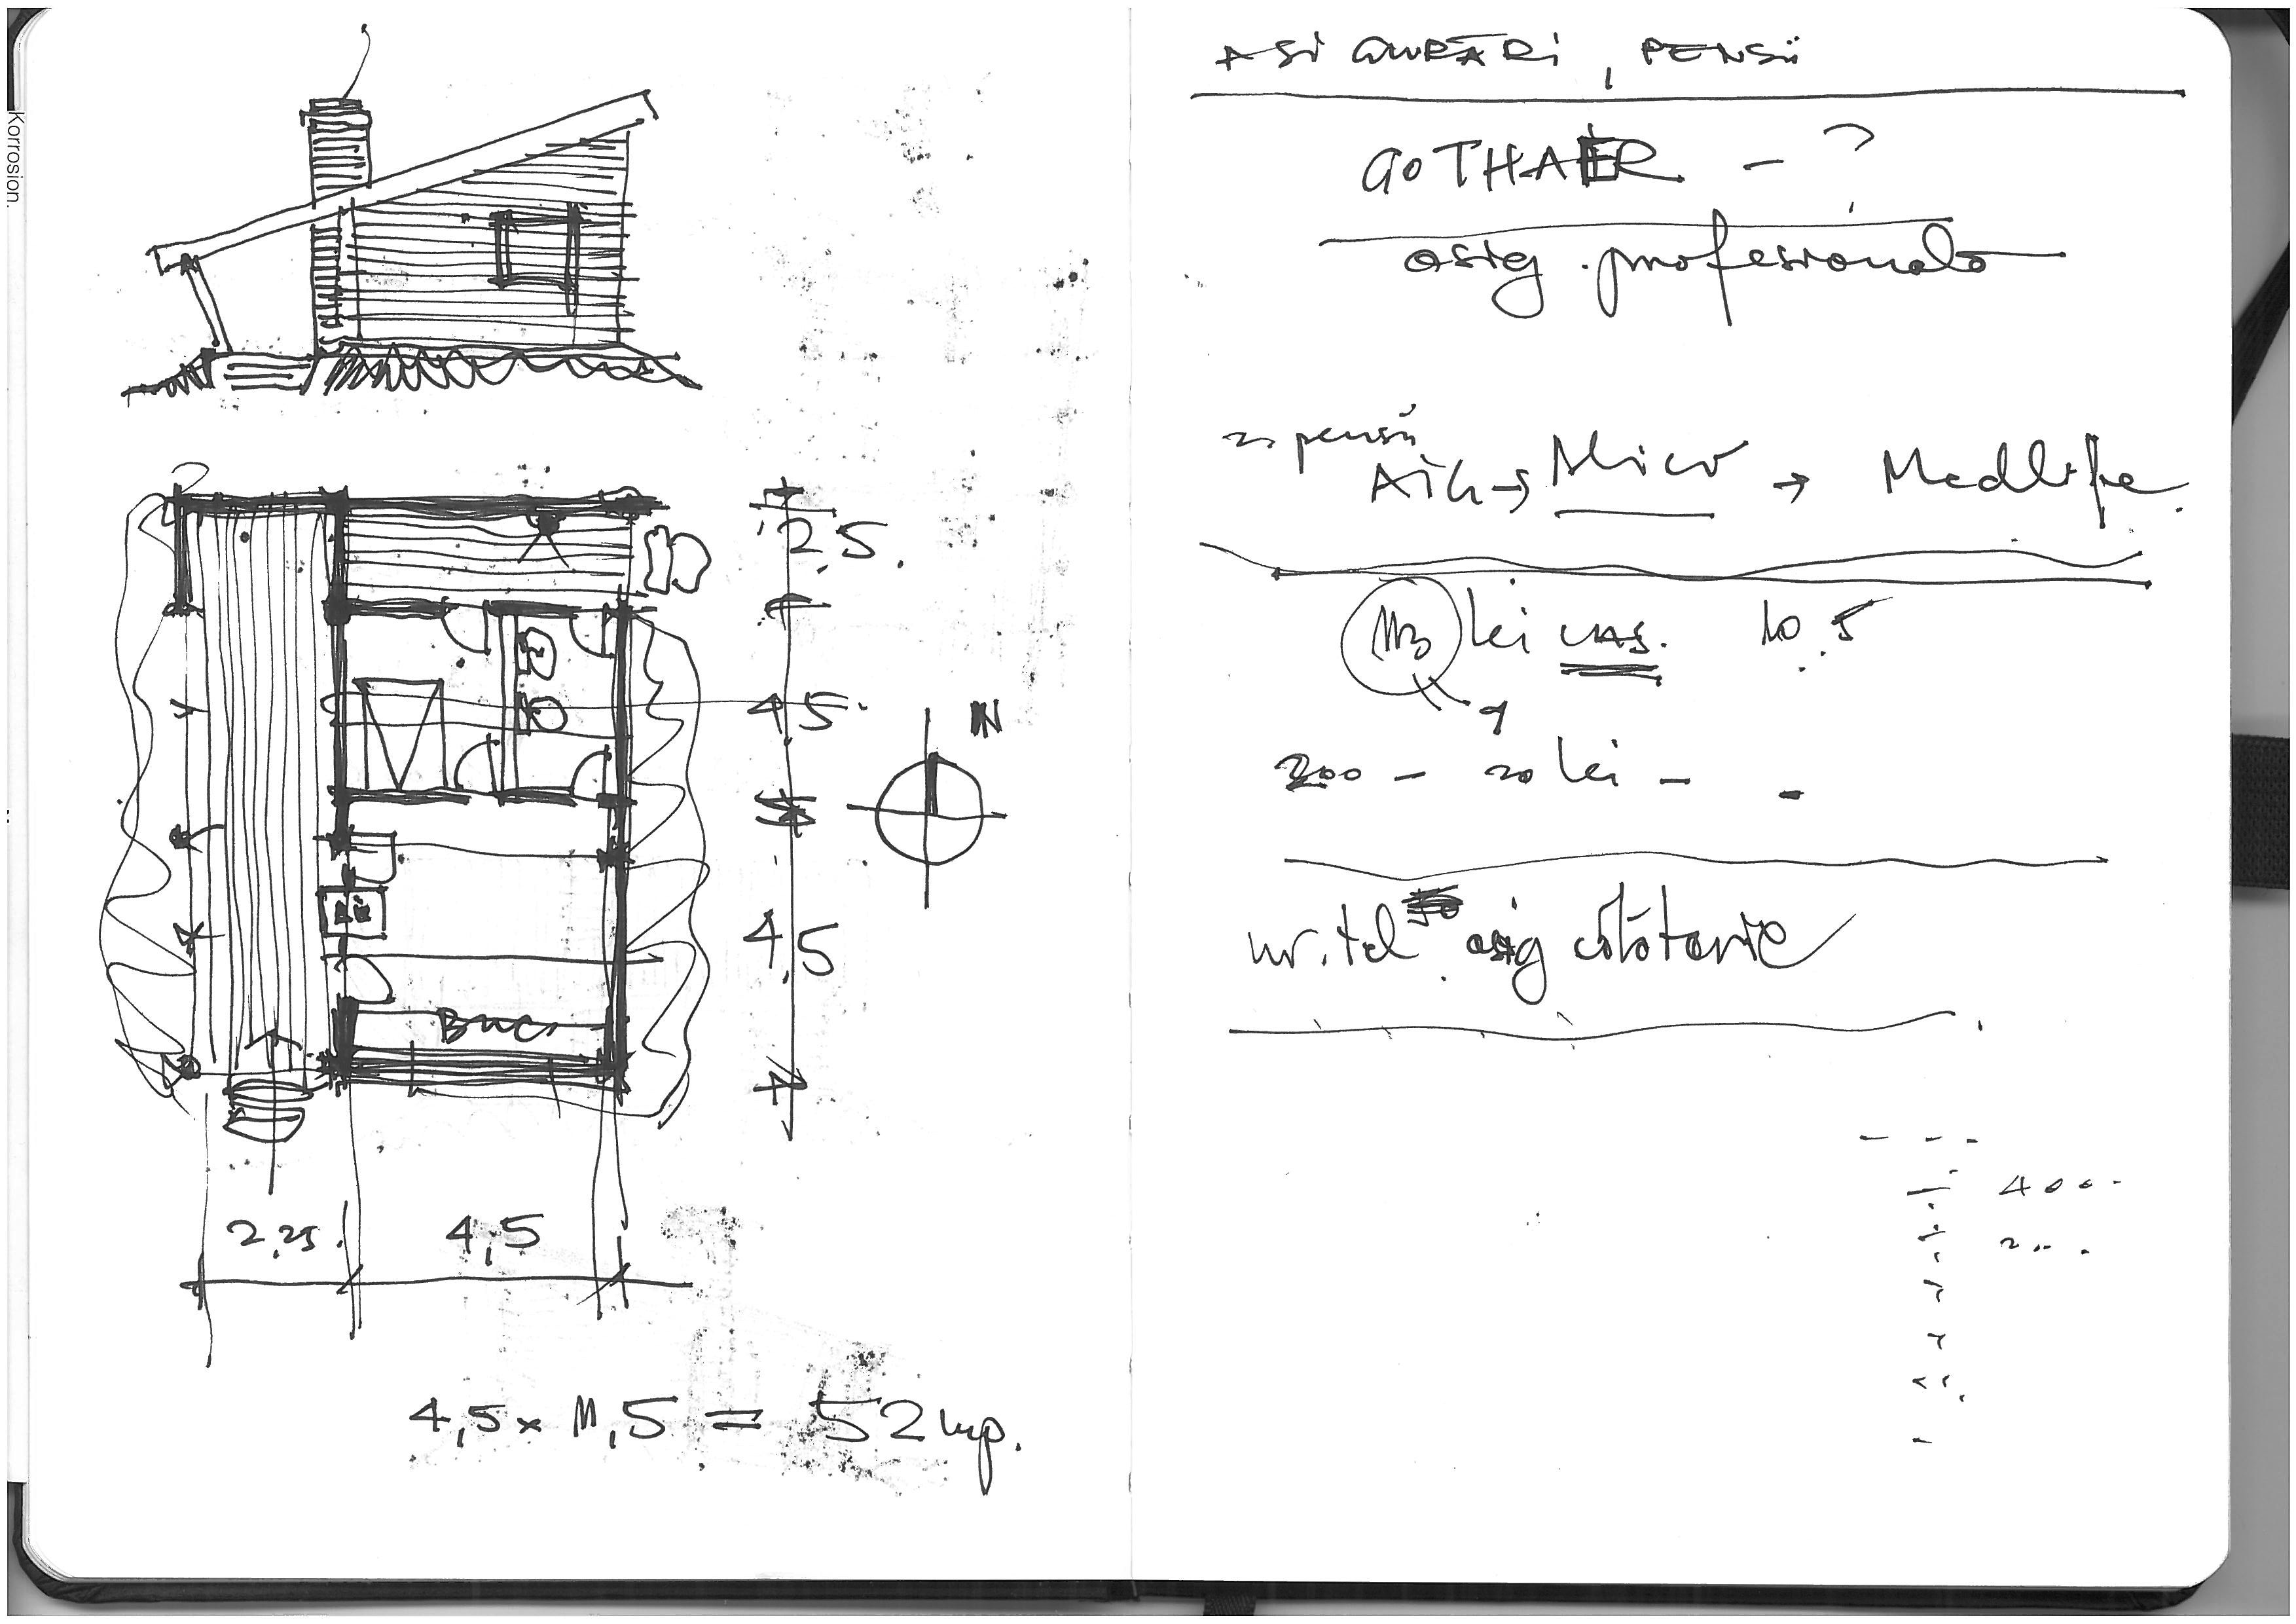 Korrosion.
2,5.
4,5.
N
4,5
BUC
2,25.
4,5
4,5 x 11,5 = 52 mp.
ASIGURĂRI, PENSII
GOTHAER - ?
asig. profesională
→ pensii
AIG → Alico → Medlife.
113 lei 10.5
9
200 - 20 lei -
nr. tel asig călătorie
400